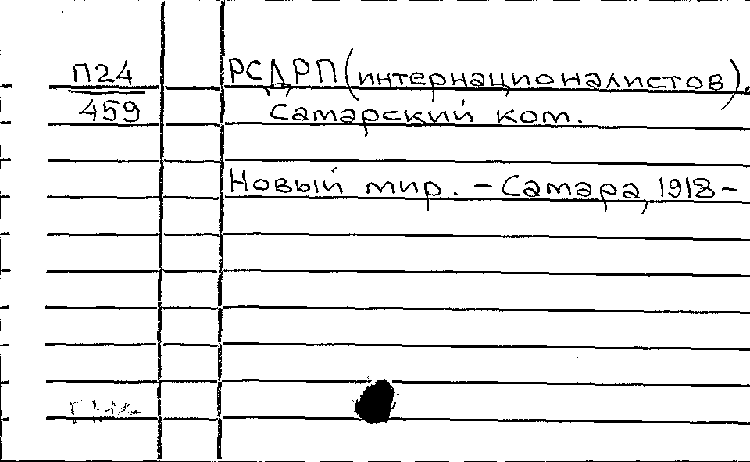 П24
459
РСДРП (интернационалистов).
Самарский ком.
Новый мир. - Самара, 1918 -